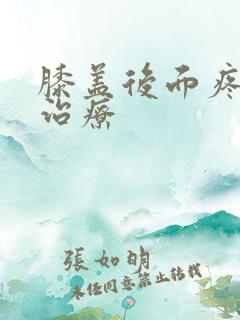 膝盖後而疼
治療
張如明
未经同意禁止转载